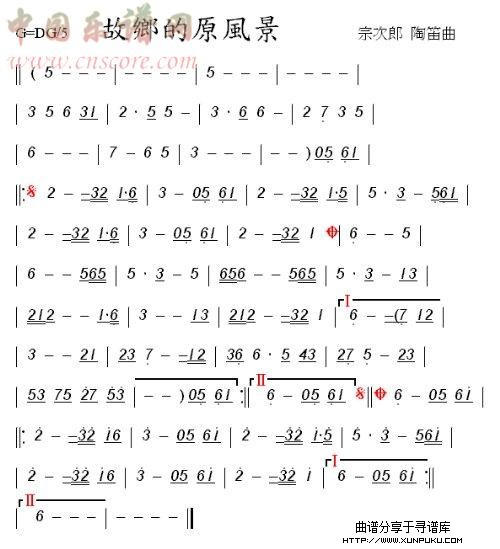 中国乐谱网
www.cnscore.com
G=DG/5 故鄉的原風景 宗次郎 陶笛曲
‖ ( 5 - - - | - - - - | 5 - - - | - - - - |
| 3 5 6 31 | 2 · 5 5 - | 3 · 6 6 - | 2 7 3 5 |
| 6 - - - | 7 - 6 5 | 3 - - - | - - ) 05 61 |
‖: 𝄋 2 - -32 1·6 | 3 - 05 61 | 2 - -32 1·5 | 5 · 3 - 561 |
| 2 - -32 1·6 | 3 - 05 61 | 2 - -32 1 𝄌 | 6 - - 5 |
| 6 - - 565 | 5 · 3 - 5 | 656 - - 565 | 5 · 3 - 13 |
| 212 - -1·6 | 3 - - 13 | 212 - -32 1 | I 6 - -(7 12 |
| 3 - - 21 | 23 7 - -12 | 36 6 · 5 43 | 27 5 - 23 |
| 53 75 27 53 | - - ) 05 61 :‖ II 6 - 05 61 𝄋 ‖ 𝄌 6 - 05 61 |
‖: 2 - -32 16 | 3 - 05 61 | 2 - -32 1·5 | 5 · 3 - 561 |
| 2 - -32 16 | 3 - 05 61 | 2 - -32 1 | I 6 - 05 61 :‖
| II 6 - - - | - - - - ‖
曲谱分享于寻谱库
HTTP://WWW.XUNPUKU.COM